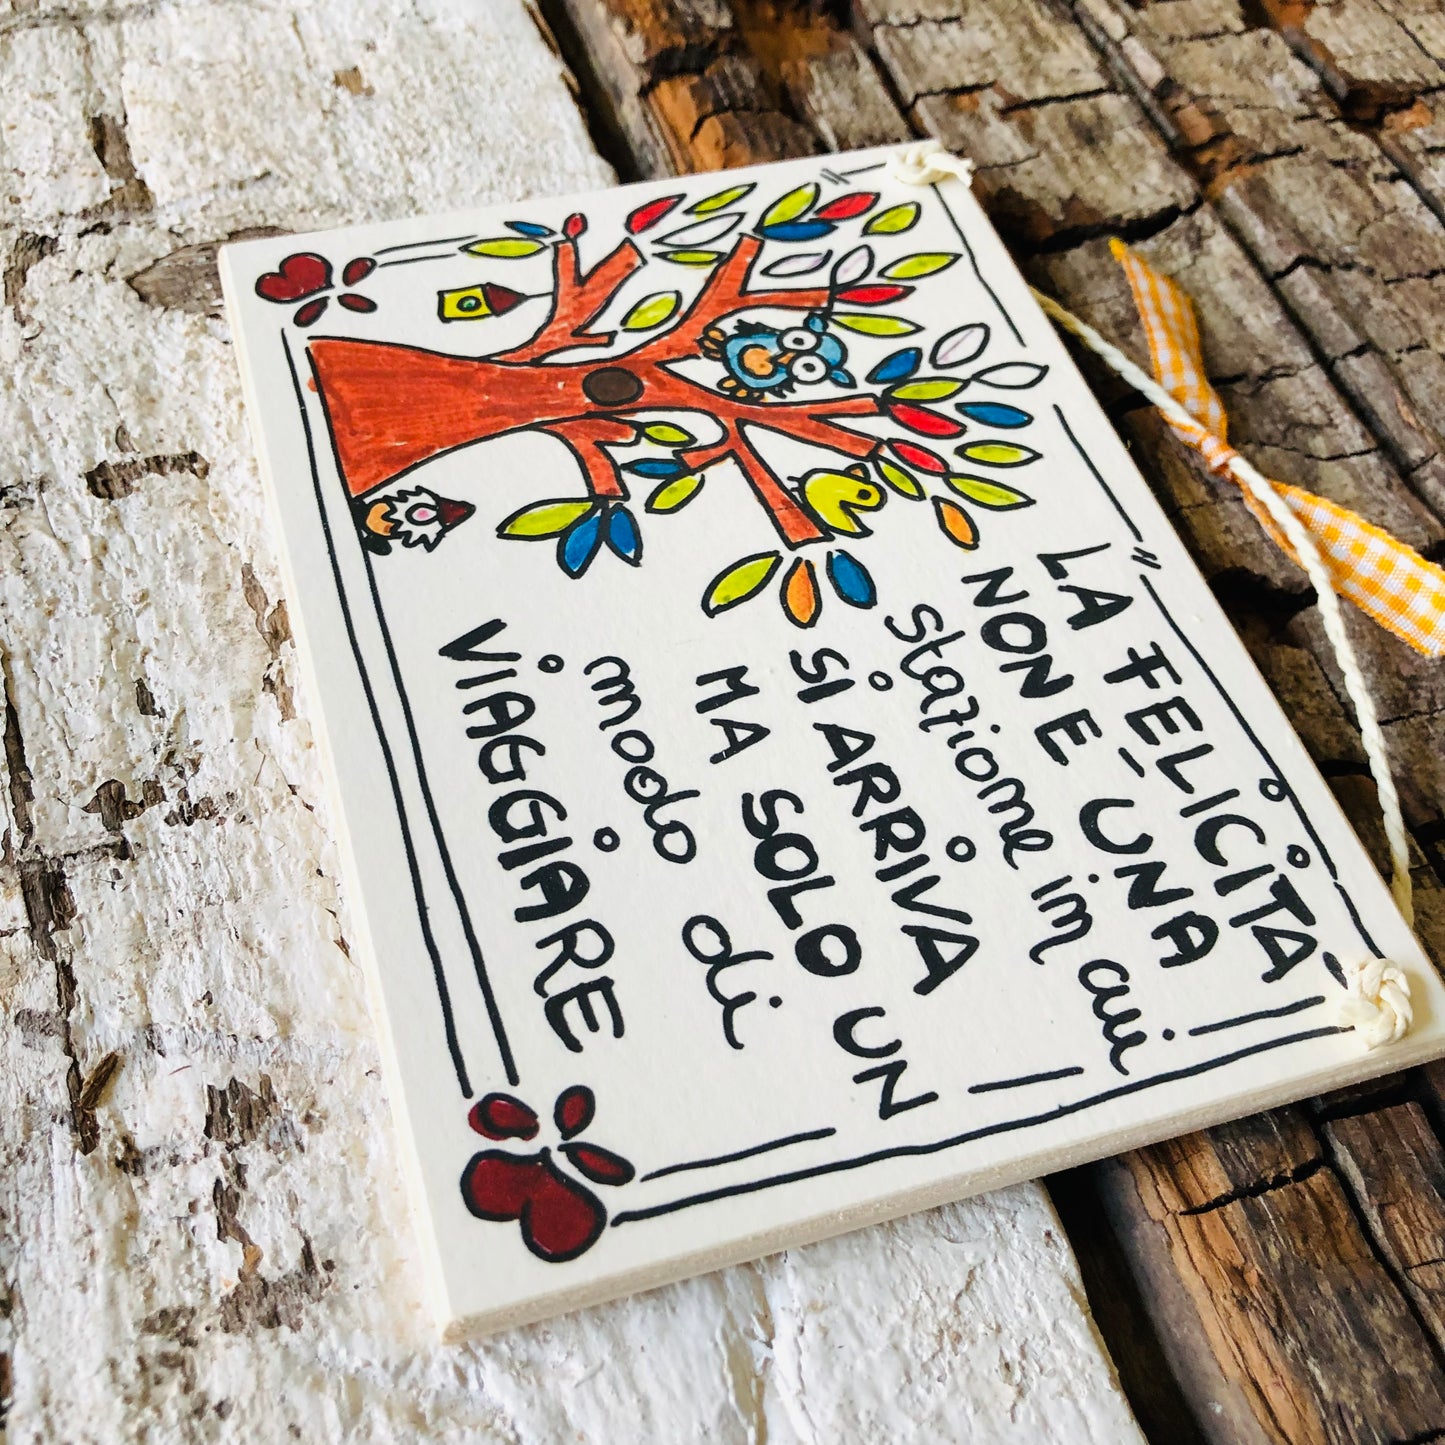 LA FELICITÀ
NON È UNA
stazione in cui
SI ARRIVA
MA SOLO UN
modo di
VIAGGIARE